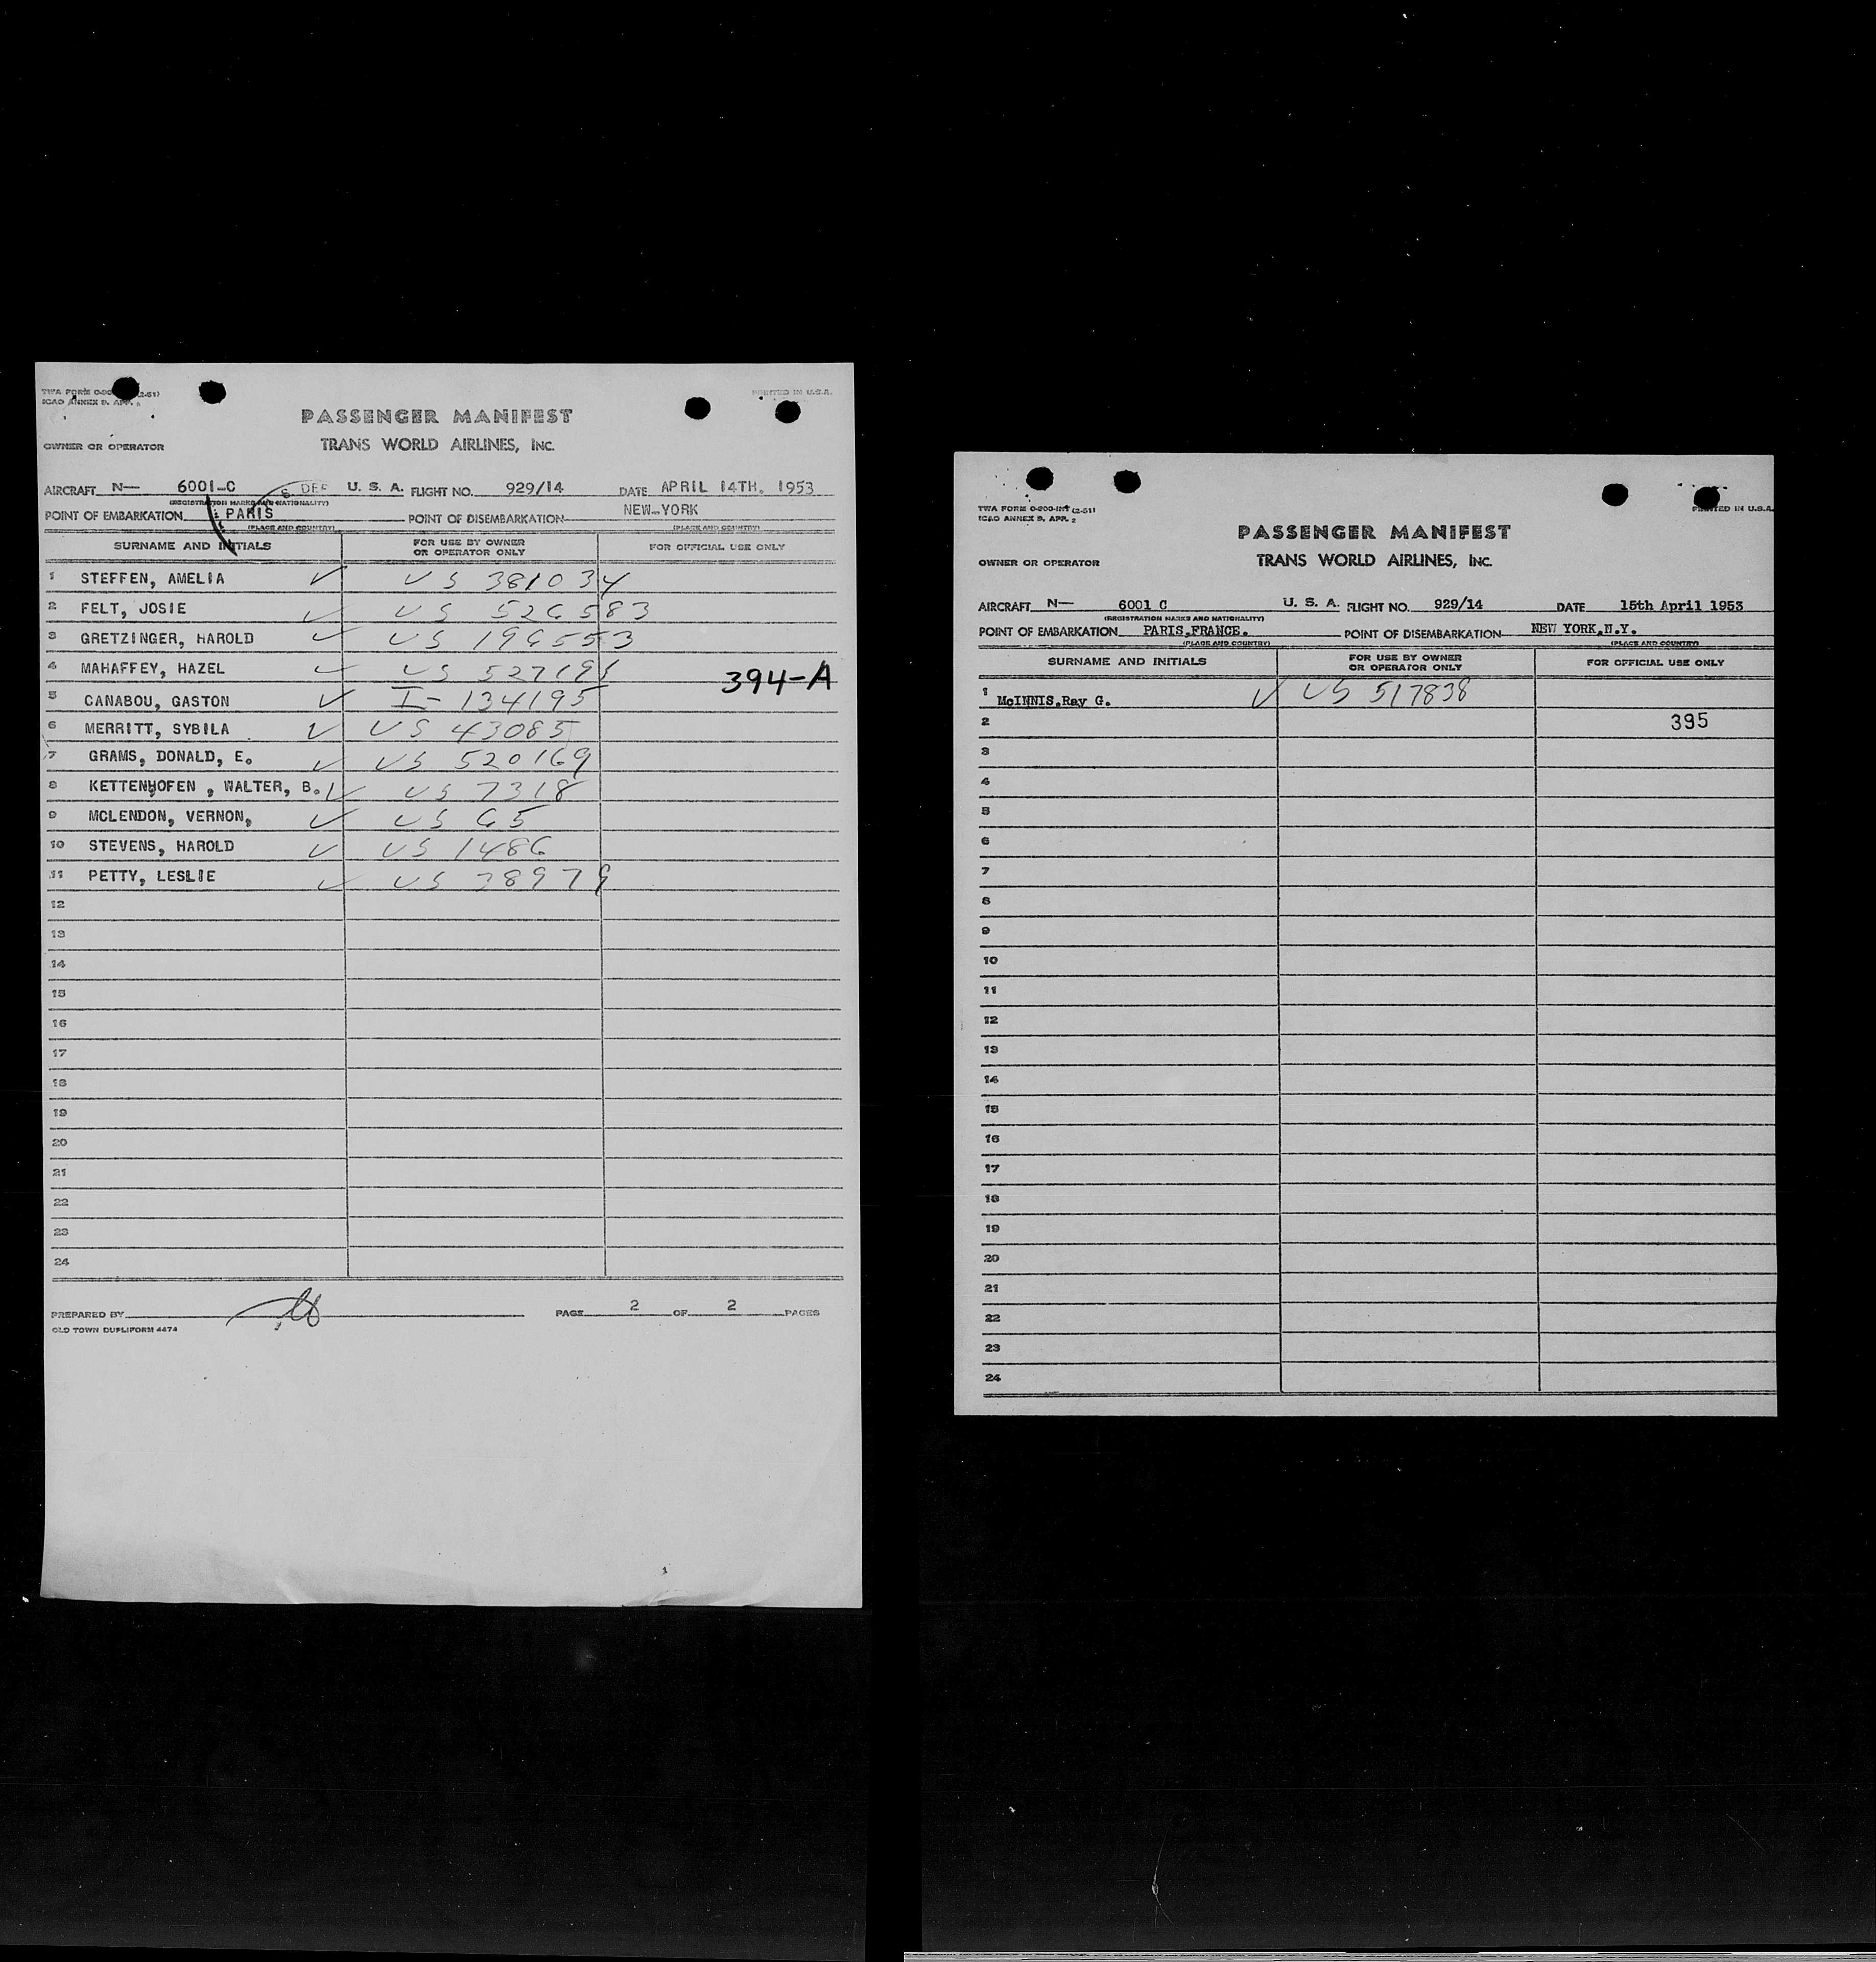 TWA FORM 0-800 (2-51)
ICAO ANNEX 9. APP. 2
PRINTED IN U.S.A.
PASSENGER MANIFEST
OWNER OR OPERATOR TRANS WORLD AIRLINES, INC.
AIRCRAFT N— 6001-C U. S. A. FLIGHT NO. 929/14 DATE APRIL 14TH. 1953
(REGISTRATION MARKS AND NATIONALITY)
POINT OF EMBARKATION PARIS POINT OF DISEMBARKATION NEW-YORK
(PLACE AND COUNTRY) (PLACE AND COUNTRY)
SURNAME AND INITIALS FOR USE BY OWNER OR OPERATOR ONLY FOR OFFICIAL USE ONLY
1 STEFFEN, AMELIA ✓ US 381034
2 FELT, JOSIE ✓ US 526583
3 GRETZINGER, HAROLD ✓ US 196553
4 MAHAFFEY, HAZEL ✓ US
394-A
5 CANABOU, GASTON ✓ I-134195
6 MERRITT, SYBILA ✓ US 43085
7 GRAMS, DONALD, E. ✓ US 520169
8 KETTENHOFEN , WALTER, B. ✓ US 7318
9 MCLENDON, VERNON, ✓ US 65
10 STEVENS, HAROLD ✓ US 1486
11 PETTY, LESLIE ✓ US
12
13
14
15
16
17
18
19
20
21
22
23
24
PREPARED BY PAGE 2 OF 2 PAGES
OLD TOWN DUPLIFORM 4474
TWA FORM 0-800-INT (2-51)
ICAO ANNEX 9. APP. 2
PRINTED IN U.S.A.
PASSENGER MANIFEST
OWNER OR OPERATOR TRANS WORLD AIRLINES, INC.
AIRCRAFT N— 6001 C U. S. A. FLIGHT NO. 929/14 DATE 15th April 1953
(REGISTRATION MARKS AND NATIONALITY)
POINT OF EMBARKATION PARIS,FRANCE. POINT OF DISEMBARKATION NEW YORK,N.Y.
(PLACE AND COUNTRY) (PLACE AND COUNTRY)
SURNAME AND INITIALS FOR USE BY OWNER OR OPERATOR ONLY FOR OFFICIAL USE ONLY
1 McINNIS.Ray G. ✓ US 517838
2 395
3
4
5
6
7
8
9
10
11
12
13
14
15
16
17
18
19
20
21
22
23
24